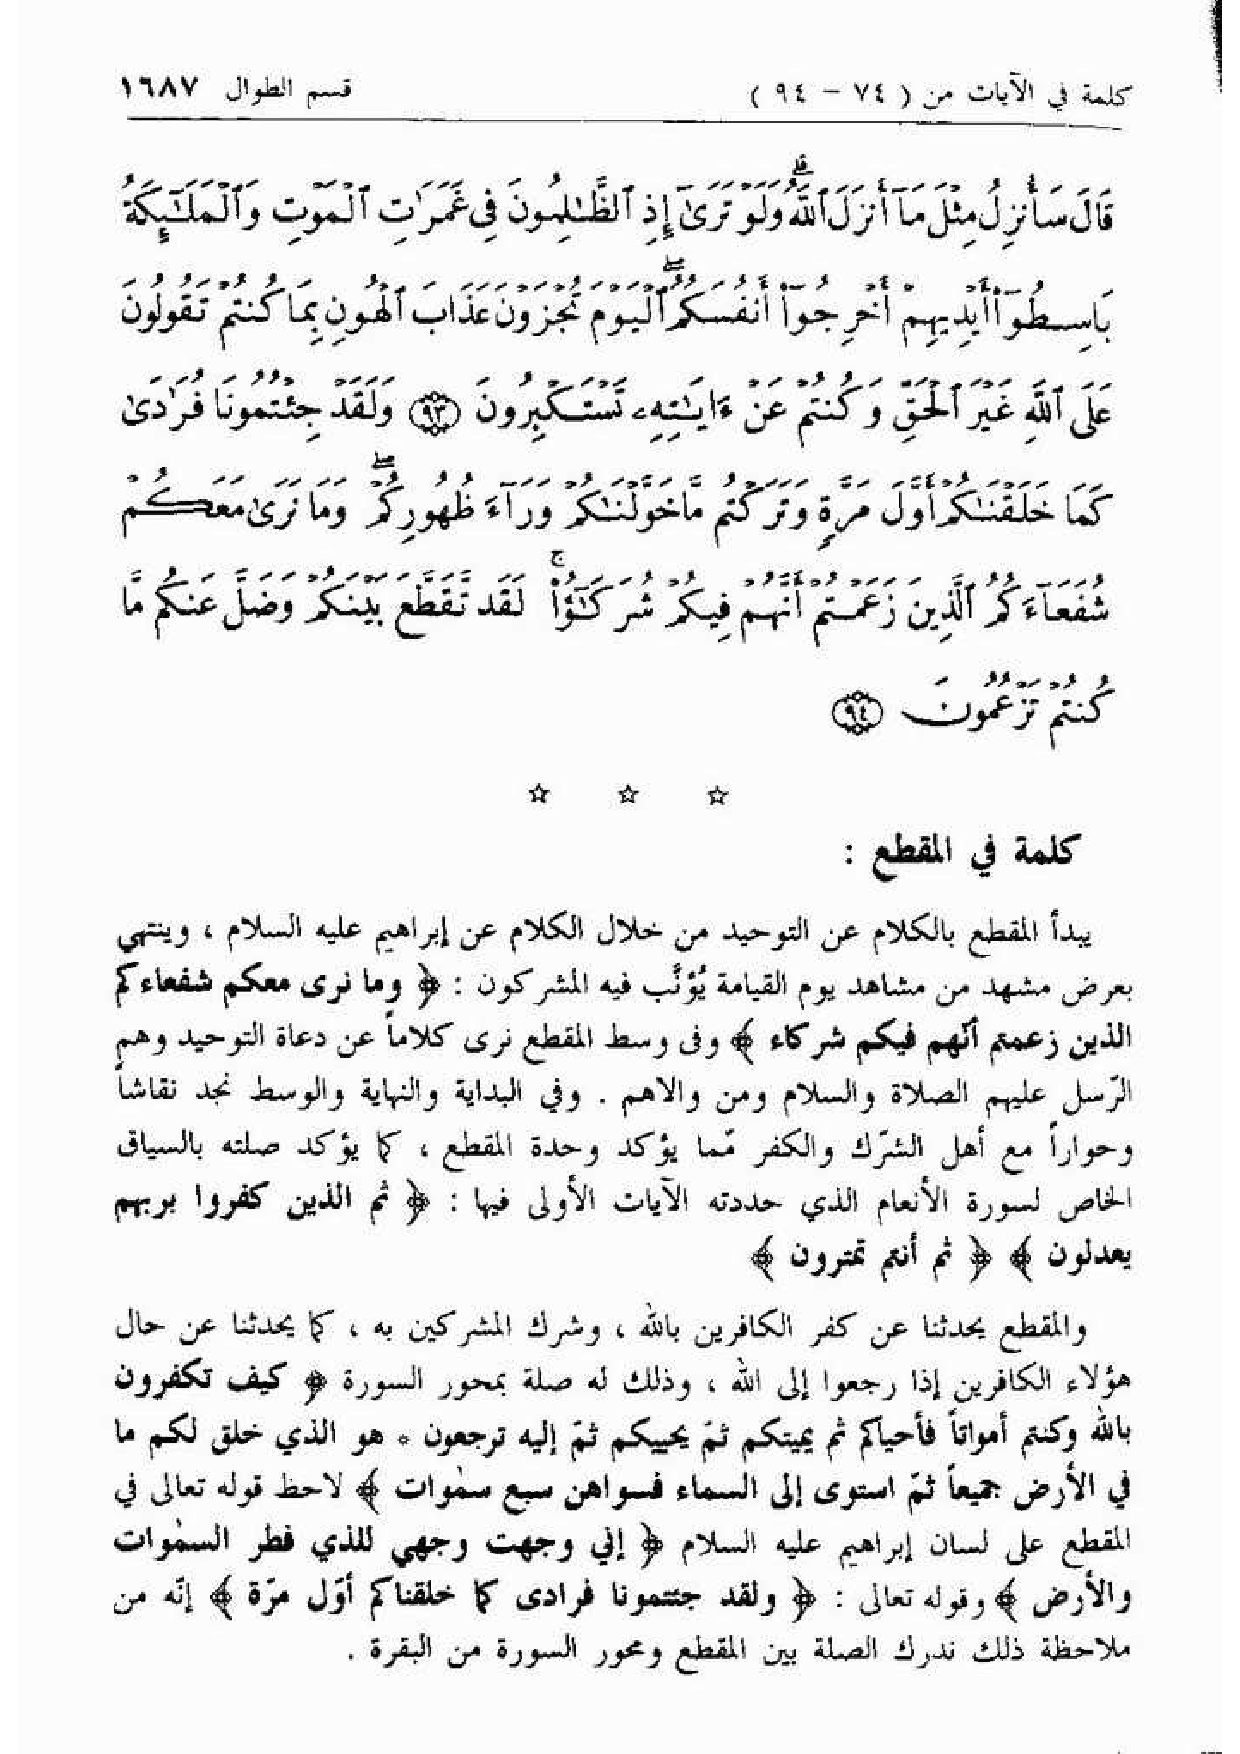 كلمة في الآيات من ( ٧٤ – ٩٤ )
قسم الطوال ١٦٨٧
قَالَ سَأُنزِلُ مِثْلَ مَآ أَنزَلَ ٱللَّهُ ۗ وَلَوْ تَرَىٰٓ إِذِ ٱلظَّـٰلِمُونَ فِى غَمَرَٰتِ ٱلْمَوْتِ وَٱلْمَلَـٰٓئِكَةُ
بَاسِطُوٓا۟ أَيْدِيهِمْ أَخْرِجُوٓا۟ أَنفُسَكُمُ ۖ ٱلْيَوْمَ تُجْزَوْنَ عَذَابَ ٱلْهُونِ بِمَا كُنتُمْ تَقُولُونَ
عَلَى ٱللَّهِ غَيْرَ ٱلْحَقِّ وَكُنتُمْ عَنْ ءَايَـٰتِهِۦ تَسْتَكْبِرُونَ ﴿٩٣﴾ وَلَقَدْ جِئْتُمُونَا فُرَٰدَىٰ
كَمَا خَلَقْنَـٰكُمْ أَوَّلَ مَرَّةٍ وَتَرَكْتُم مَّا خَوَّلْنَـٰكُمْ وَرَآءَ ظُهُورِكُمْ ۖ وَمَا نَرَىٰ مَعَكُمْ
شُفَعَآءَكُمُ ٱلَّذِينَ زَعَمْتُمْ أَنَّهُمْ فِيكُمْ شُرَكَـٰٓؤُا۟ ۚ لَقَد تَّقَطَّعَ بَيْنَكُمْ وَضَلَّ عَنكُم مَّا
كُنتُمْ تَزْعُمُونَ ﴿٩٤﴾
☆ ☆ ☆
كلمة في المقطع :
يبدأ المقطع بالكلام عن التوحيد من خلال الكلام عن إبراهيم عليه السلام ، وينتهي
بعرض مشهد من مشاهد يوم القيامة يُؤنَّب فيه المشركون : ﴿ وما نرى معكم شفعاءكم
الذين زعمتم أنّهم فيكم شركاء ﴾ وفى وسط المقطع نرى كلاماً عن دعاة التوحيد وهم
الرّسل عليهم الصلاة والسلام ومن والاهم . وفي البداية والنهاية والوسط نجد نقاشاً
وحواراً مع أهل الشرك والكفر مّما يؤكد وحدة المقطع ، كما يؤكد صلته بالسياق
الخاص لسورة الأنعام الذي حددته الآيات الأولى فيها : ﴿ ثم الذين كفروا بربهم
يعدلون ﴾ ﴿ ثم أنتم تمترون ﴾
والمقطع يحدثنا عن كفر الكافرين بالله ، وشرك المشركين به ، كما يحدثنا عن حال
هؤلاء الكافرين إذا رجعوا إلى الله ، وذلك له صلة بمحور السورة ﴿ كيف تكفرون
بالله وكنتم أمواتاً فأحياكم ثم يميتكم ثمّ يحييكم ثمّ إليه ترجعون * هو الذي خلق لكم ما
في الأرض جميعاً ثمّ استوى إلى السماء فسواهن سبع سمٰوات ﴾ لاحظ قوله تعالى في
المقطع على لسان إبراهيم عليه السلام ﴿ إني وجهت وجهي للذي فطر السمٰوات
والأرض ﴾ وقوله تعالى : ﴿ ولقد جئتمونا فرادى كما خلقناكم أوّل مرّة ﴾ إنّه من
ملاحظة ذلك ندرك الصلة بين المقطع ومحور السورة من البقرة .